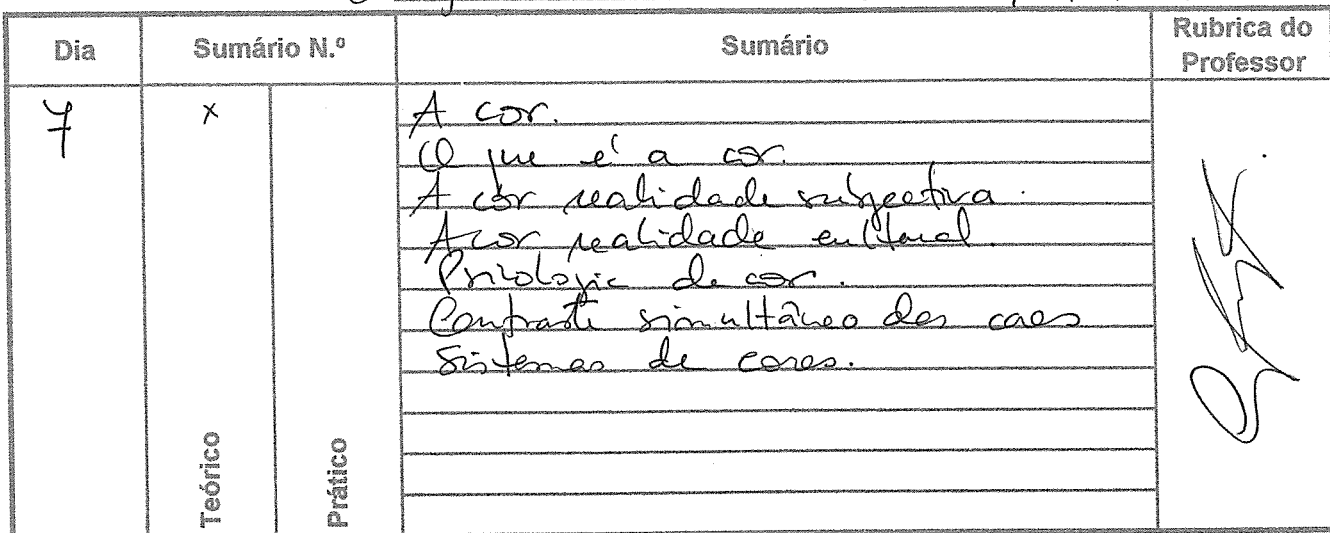 Dia Sumário N.º Sumário Rubrica do Professor
7 x
A cor.
O que é a cor.
A cor realidade subjectiva.
A cor realidade cultural.
Psicologia da cor.
Contraste simultâneo das cores
Sistemas de cores.
Teórico
Prático